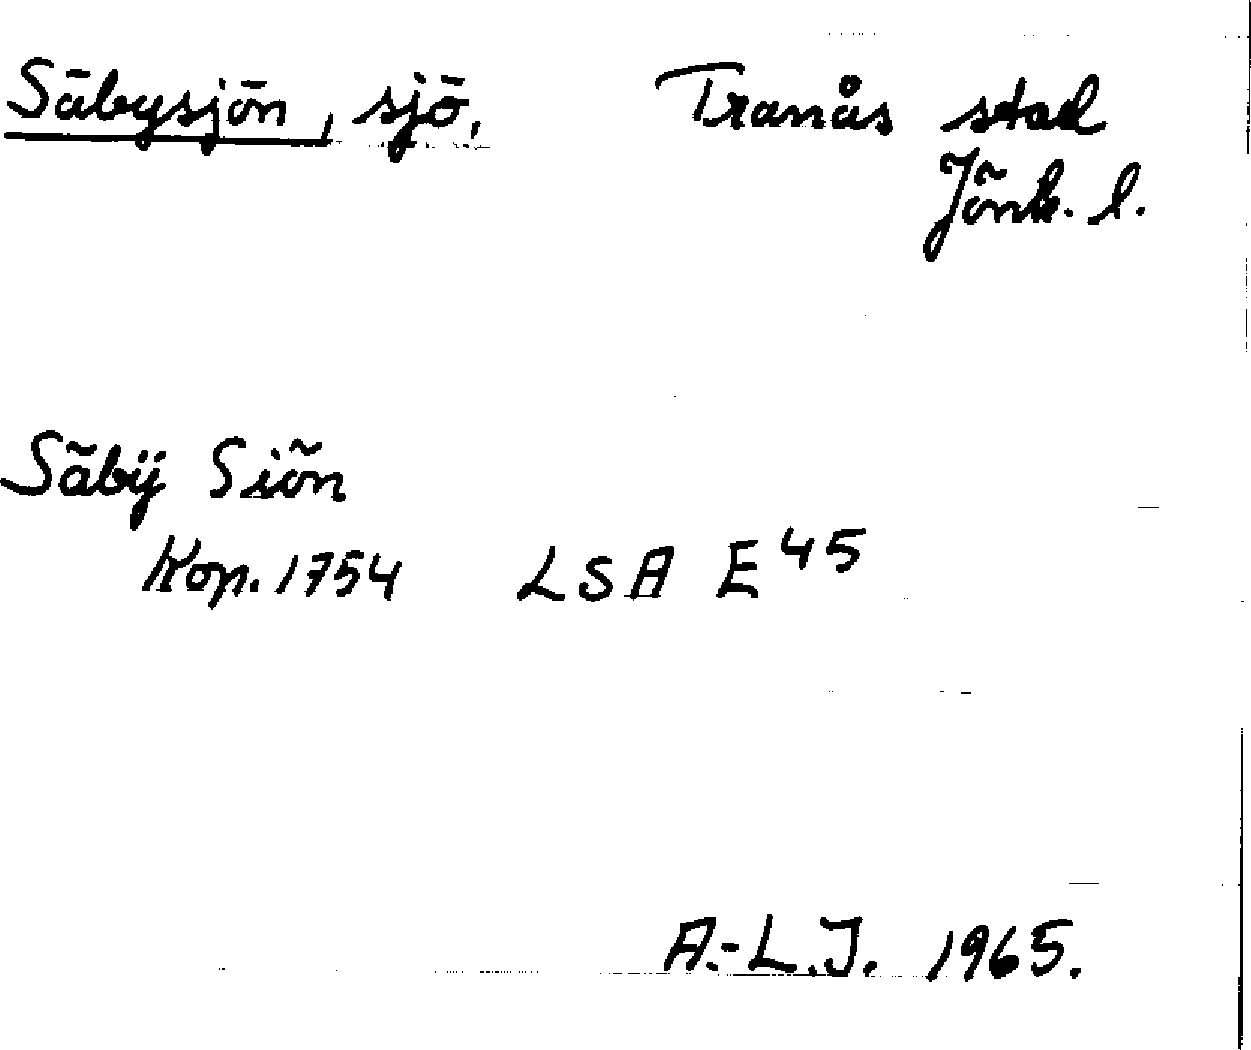 Säbysjön, sjö, Tranås stad
Jönk. l.
Säbÿ Siön
Kop. 1754 LSA E45
A.-L.J. 1965.